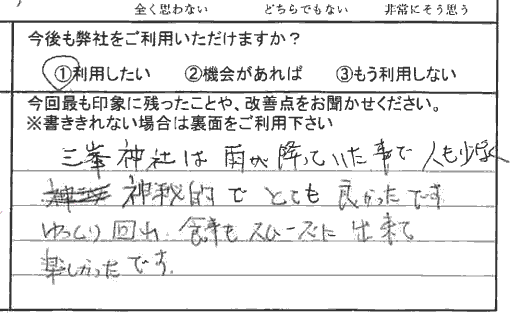 全く思わない どちらでもない 非常にそう思う
今後も弊社をご利用いただけますか？
①利用したい ②機会があれば ③もう利用しない
今回最も印象に残ったことや、改善点をお聞かせください。
※書ききれない場合は裏面をご利用下さい
三峯神社は雨が降っていた事で人も少なく
神秘的でとても良かったです
ゆっくり回れ 食事もスムーズに出来て
楽しかったです.